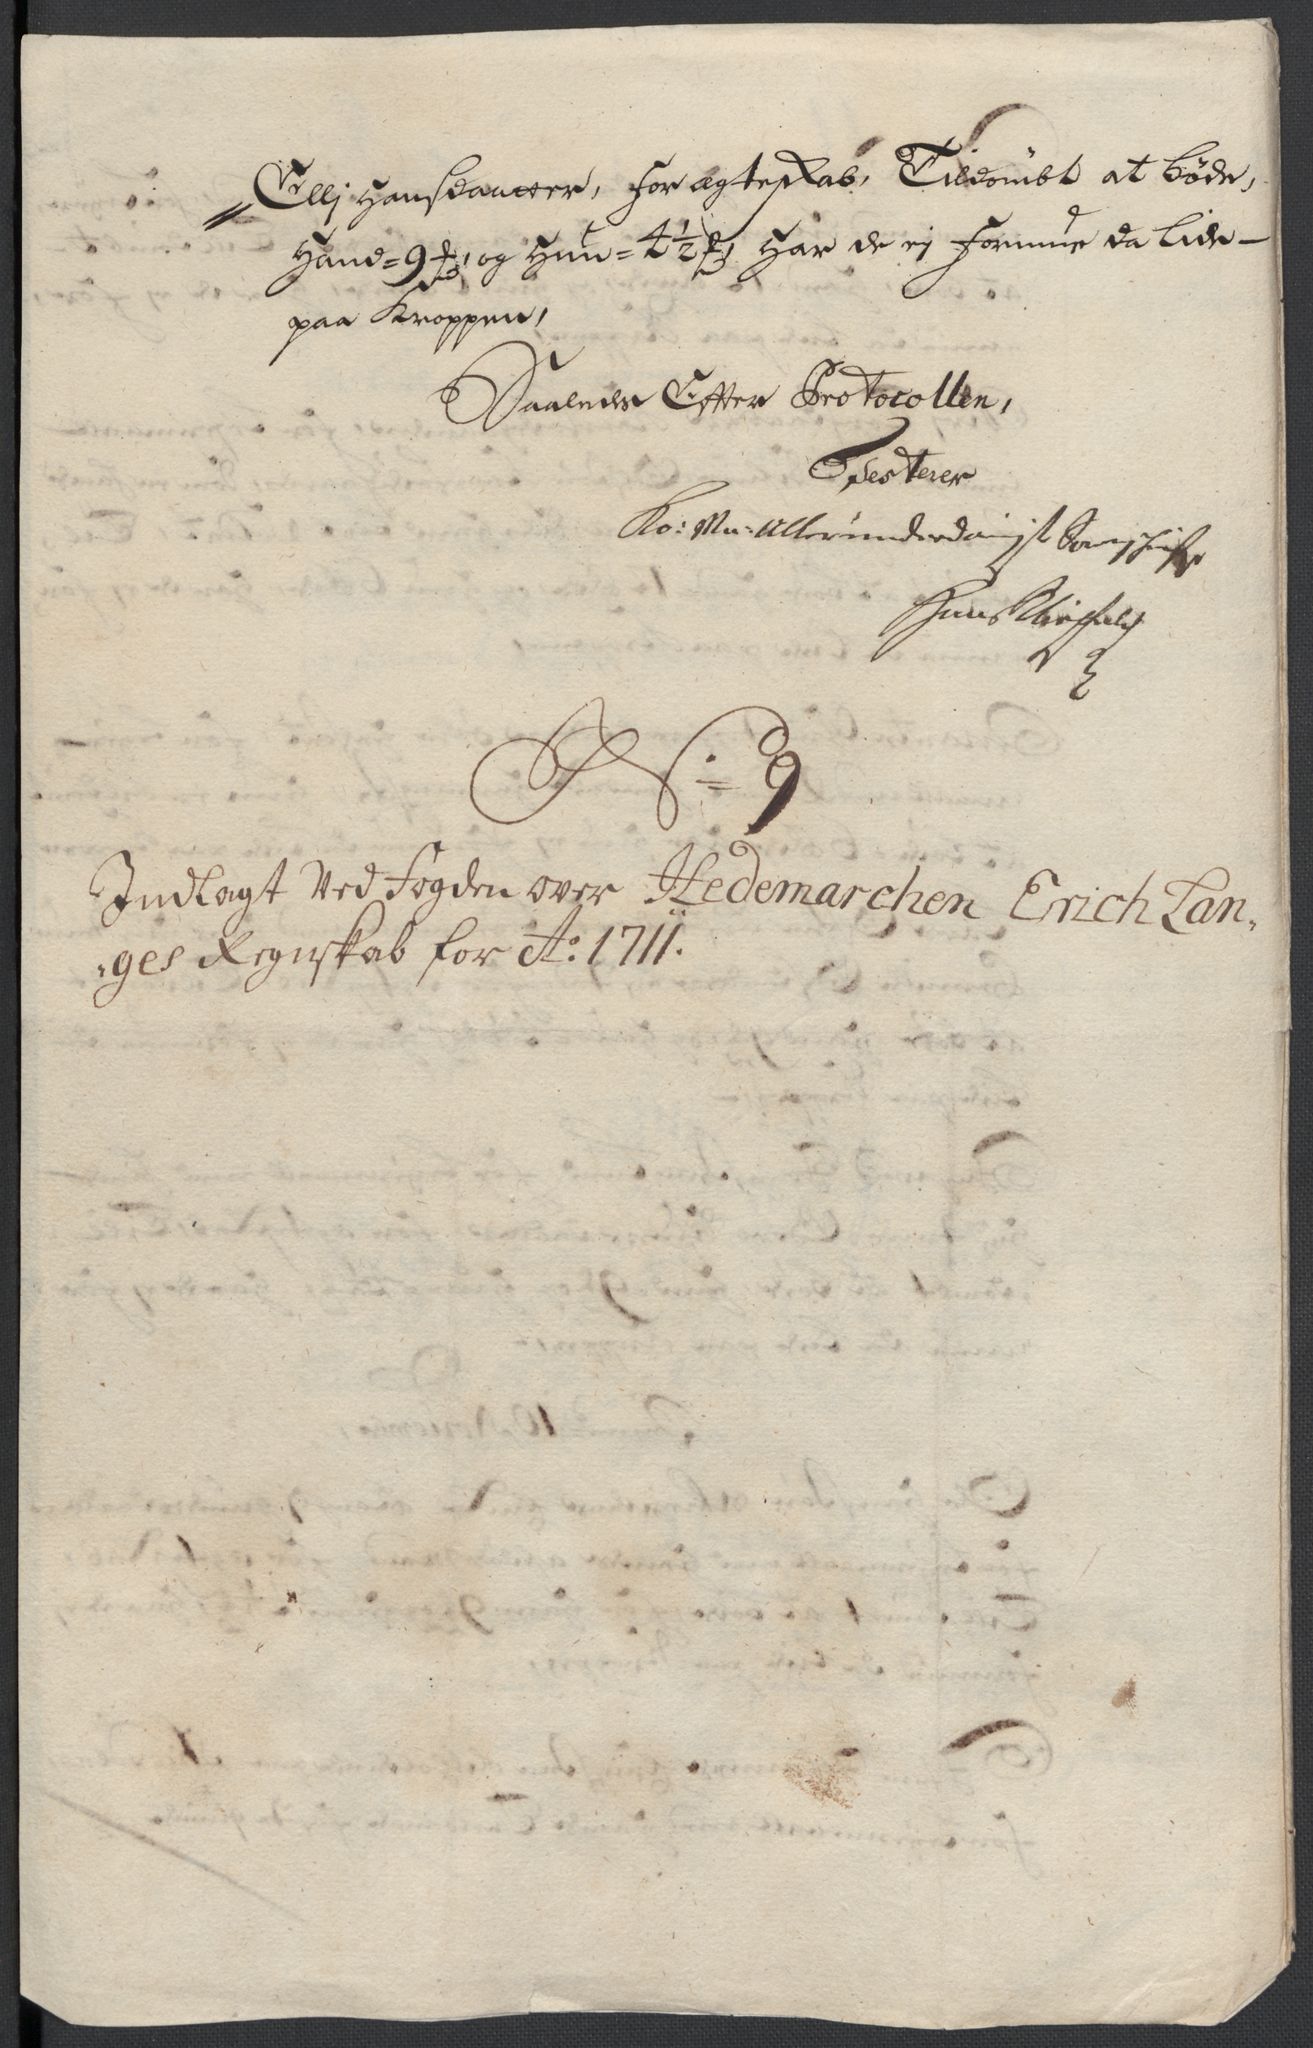 Ellj Hansdaatter, for ægteskab, Tildømbt at bøde,
Hand = 9 rdr, og Hun = 4½ rdr, Har de ej formue da lide
paa Kroppen,
Saaledes Efter Protocollen,
Testerer
Ko: Ma: Allerunderdanigst Sorenskrifver
Hans
No: 9
Indlagt Ved Fogden over Hedemarchen Erich Lan-
-ges Regnskab for Ao: 1711.